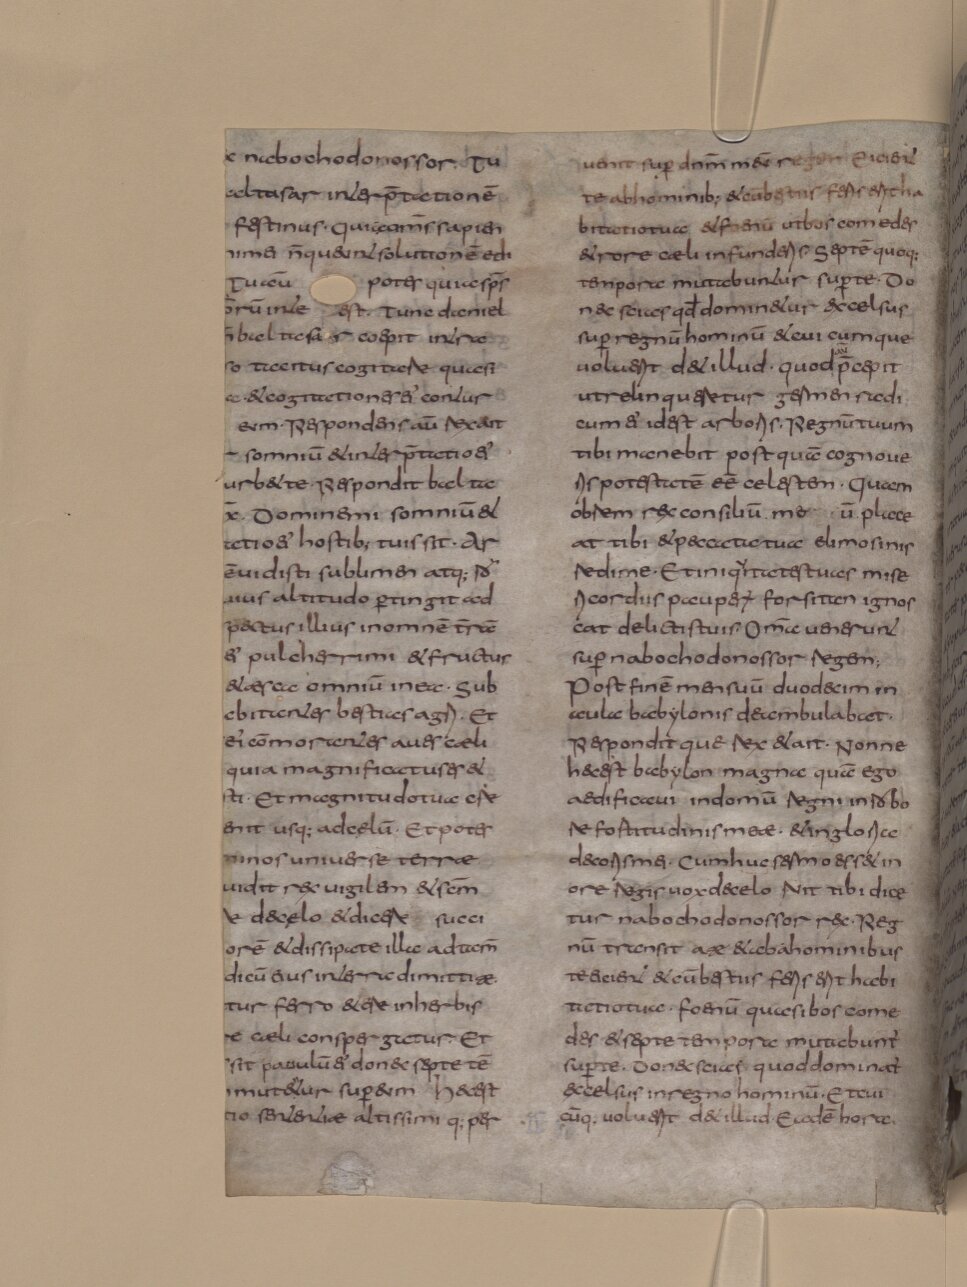 x nabochodonossor. Tu
baltasar interp̄tationē
festinus. Quia om̄s sapien
nime n̄ queunt solutionē edi
Tu aū potes quia sp̄s
ōrū in te est. Tunc daniel
baltasar coepit intra
so tacitus cogitare quasi
a. et cogitationes eꝰ contur
eum. Respondens aū rex ait
somniū et interp̄tatio eꝰ
turbet te. Respondit balta
x̄. Domine mi somniū et
tatio eꝰ hostib; tuis sit. Ar
ē vidisti sublimem atq; ro
uius altitudo ꝑtingit ad
spectus illius in omnē t̄rā
eꝰ pulcherrimi et fructus
et aesca omniū in ea. Sub
habitantes bestias agri. Et
eiꝰ cōmorantes aues caeli
quia magnificatus es et
sti. Et magnitudo tua cre
enit usq; ad celū. Et potes
minos uniuerse terrae
uidit rex uigilem et sc̄m
re de celo et dicere succi
orē et dissipate illa attam̄
dicū eius in terra dimittite.
tur ferro et ere in herbis
re caeli conspergatur Et
sit pabulū eꝰ donec septē tē
mutentur super eum Haec est
tio sententiae altissimi q; per
uenit sup̄ dnm̄ meū regem Eicient
te ab hominib; et cū bestiis feris erit ha
bitatio tua et foenū ut bos comedes
et rore caeli infunderis Septē quoq;
tempora mutabuntur suꝑ te. Do
nec scias qđ dominetur excelsus
suꝑ regnū hominū et cui cumque
uoluerit det illud. quod p̄cepit
ut relinqueretur germen radi
cum eꝰ id est arboris. Regnū tuum
tibi manebit postquā cognoue
ris potestatē eē celestem. Quam
obrem rex consiliū meū placa
at tibi et peccata tua elimosinis
redime. Et iniquitates tuas mise
ricordiis pauperū forsitan ignos
cat delictis tuis. Om̄a uenerunt
sup̄ nabochodonossor regem;
Post finē mensuū duodecim in
aula babylonis deambulabat.
Respondit que rex et ait. Nonne
haec est babylon magna quā ego
aedificaui in domū regni in robo
re fortitudinis meae. et in gloria
decoris mei. Cum huc sermo esset in
ore regis uox de celo ruit tibi dici
tur nabochodonossor rex. Reg
nū transit a te et ab hominibus
te eicient et cū bestiis feris erit habi
tatio tua. foenū quasi bos come
des et septē tempora mutabunt̄
suꝑ te. Donec scias quod dominat̄
excelsus in regno hominū. Et cui
cūq; uoluerit det illud. Eadē hora.